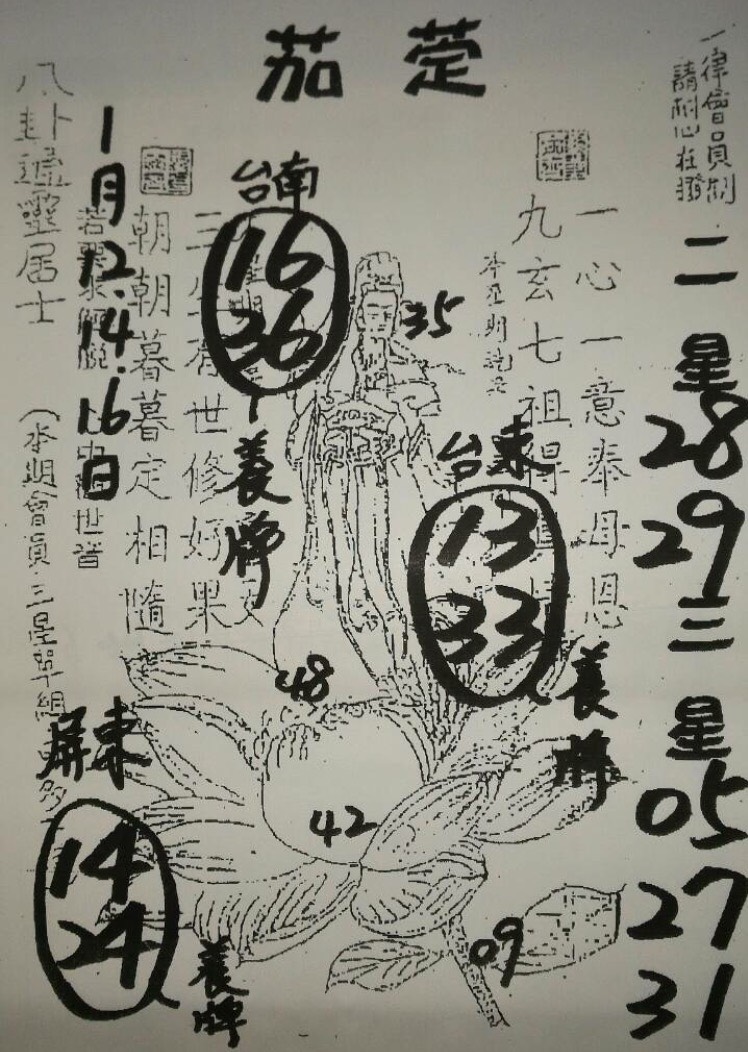 茄萣
一律會員制
請耐心在撥
二星
28
29
三星
05
27
31
一心一意奉母恩
九玄七祖得
35
台東
13
33
養牌
台南
16
36
養牌
有世修好果
朝朝暮暮定相隨
1月12.14.16日
八卦
靈居士
(本期會員三星單組
48
42
09
屏東
14
24
養牌